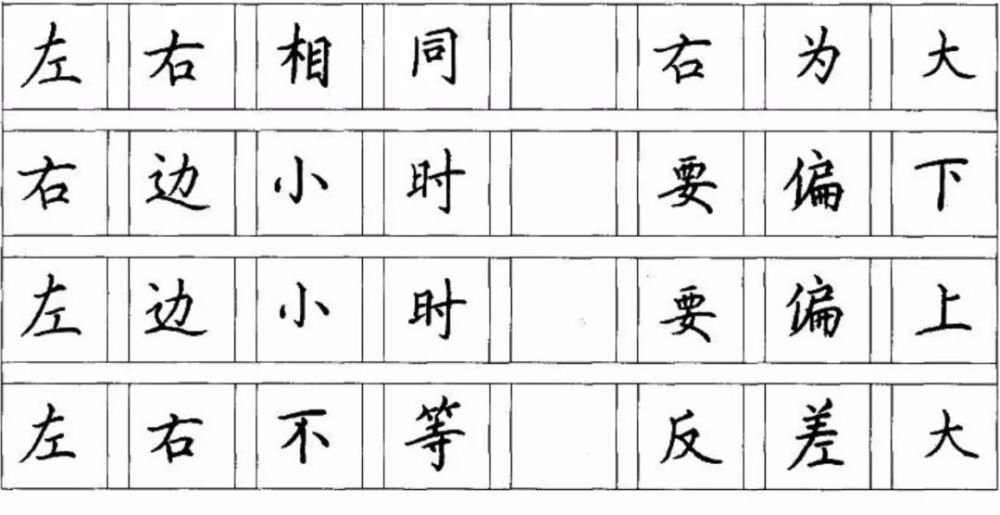 左右相同 右为大
右边小时 要偏下
左边小时 要偏上
左右不等 反差大